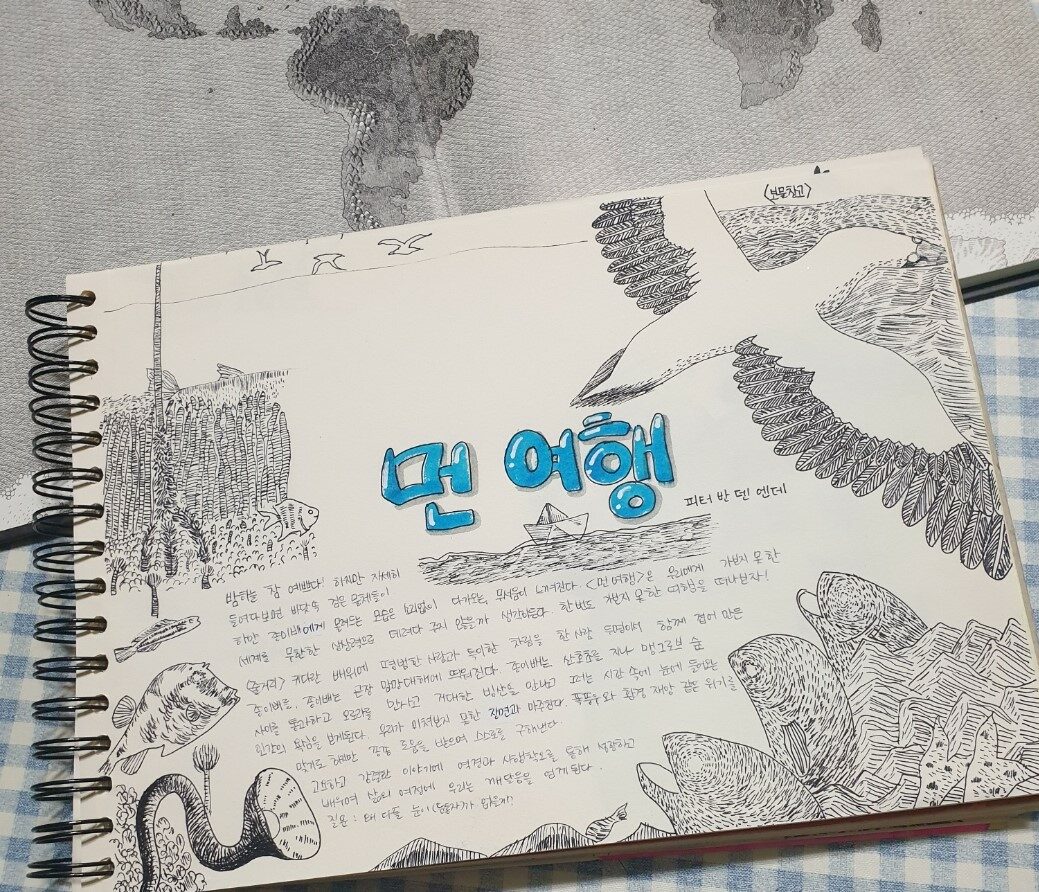 〈보물창고〉
먼 여행
피터 반 덴 엔데
밤하늘 참 예쁘다! 하지만 자세히
들여다보면 바닷속 검은 물체들이
하얀 종이배에게 모여드는 모습은 소리없이 다가오는 무서움이 느껴진다. <먼 여행>은 우리에게 가보지 못한
세계를 무한한 상상력으로 데려다 주지 않을까 생각이든다. 한번도 가보지 못한 여행을 떠나보자!
〈줄거리〉 커다란 배위에 평범한 사람과 특이한 차림을 한 사람 두명이서 함께 접어 만든
종이배. 종이배는 곧장 망망대해에 띄워진다. 종이배는 산호초를 지나 맹그로브 숲
사이를 통과하고 오로라를 만나고 거대한 빙산을 만나고 그러는 시간 속에 눈에
인간의 욕심을 보게된다. 우리가 미쳐보지 못한 직면과 마주한다. 폭풍우와 환경 재앙 같은 위기를
맞기도 하지만 도움을 받으며 스스로를 구해낸다.
고요하고 강렬한 이야기에 역경과 시행착오를 통해 성장하고
배우며 삶의 여정에 우리는 깨달음을 얻게된다.
질문 : 왜 다들 눈이